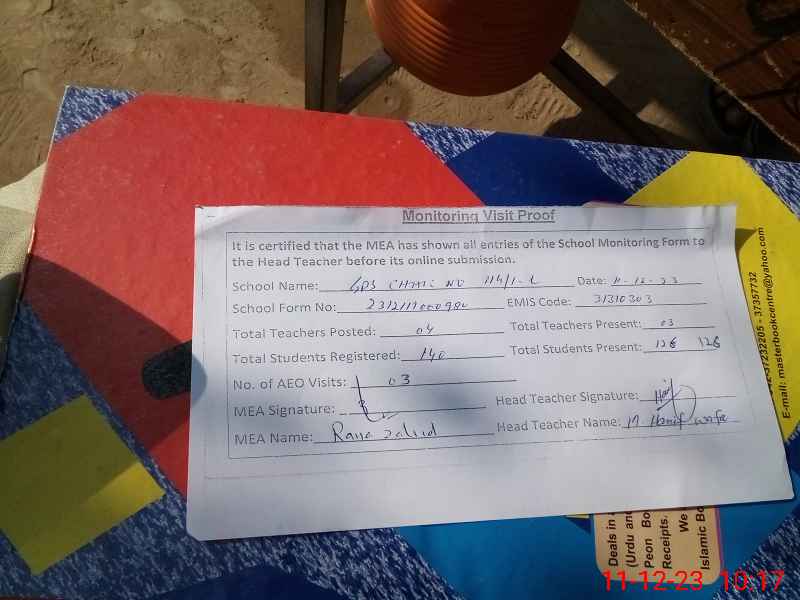 Monitoring Visit Proof
It is certified that the MEA has shown all entries of the School Monitoring Form to
the Head Teacher before its online submission.
School Name: GPS CHAK NO 114/1-L Date: 11-12-23
School Form No: EMIS Code: 31310303
Total Teachers Posted: 04 Total Teachers Present: 03
Total Students Registered: 140 Total Students Present: 126 126
No. of AEO Visits: 03
MEA Signature: Head Teacher Signature:
MEA Name: Rana Zahid Head Teacher Name: M Hanif
37232205 - 37357732
E-mail: masterbookcentre@yahoo.com
Deals in
(Urdu and
Peon Bo
Receipts.
We
Islamic Bo
11-12-23 10:17